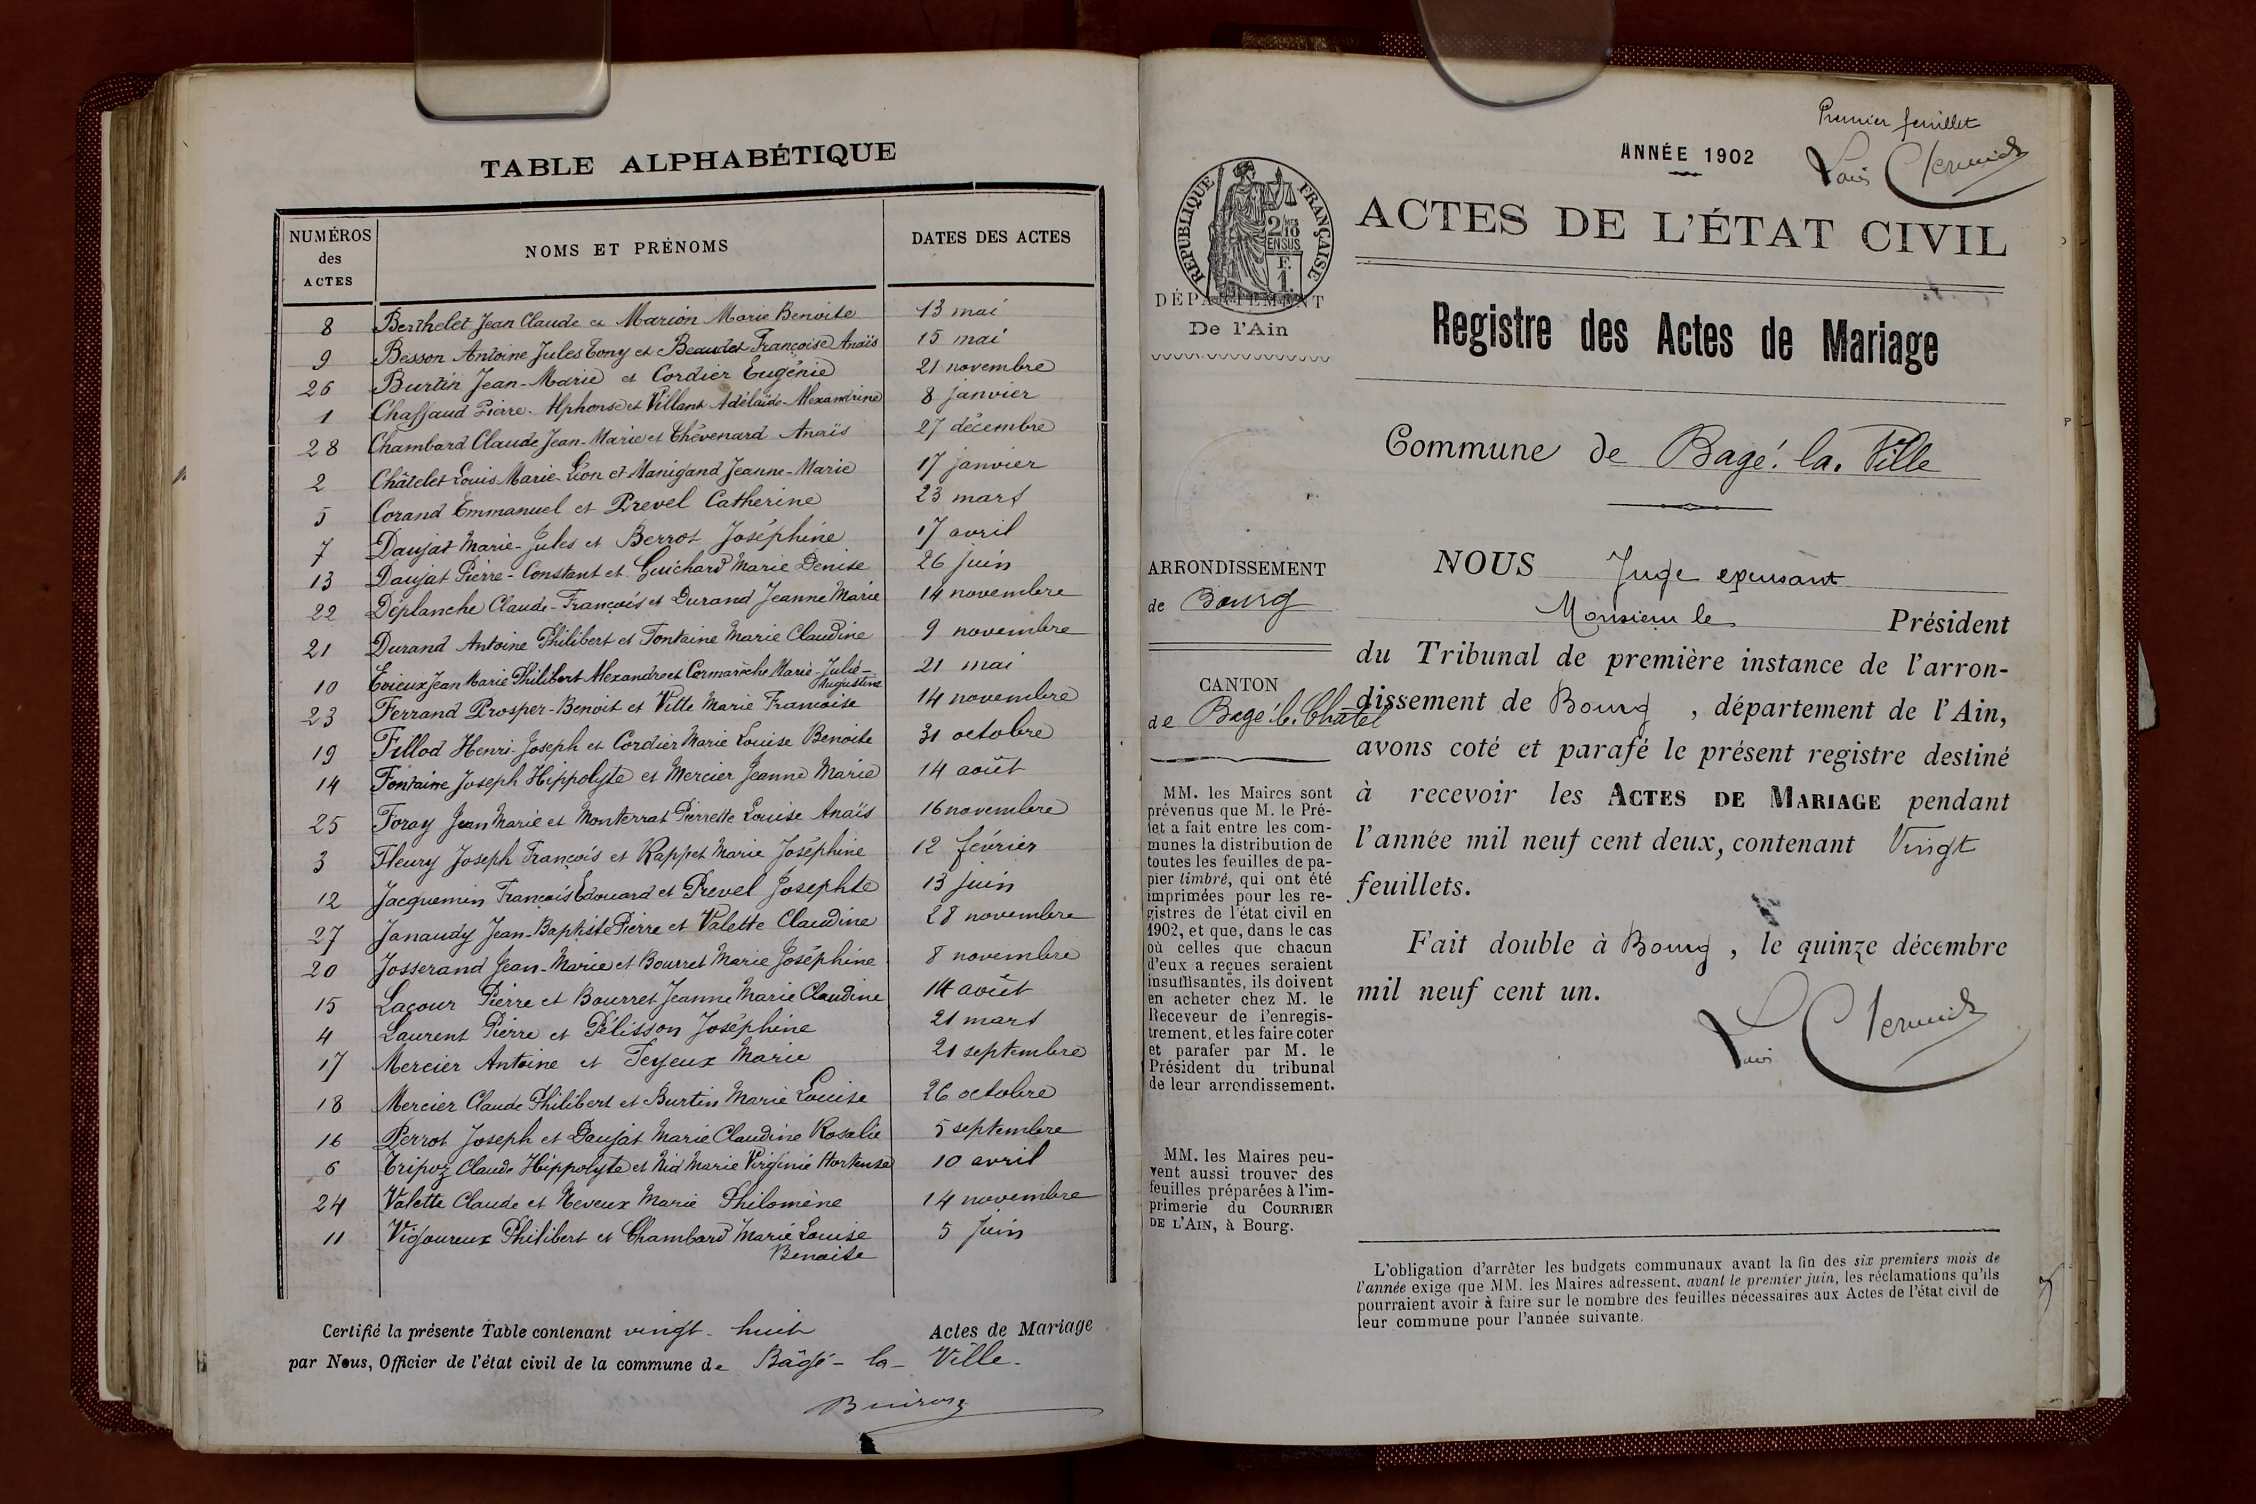 TABLE ALPHABÉTIQUE
NUMÉROS des ACTES NOMS ET PRÉNOMS DATES DES ACTES
8 Berthelet Jean Claude et Marion Marie Benoite 13 mai
9 Besson Antoine Jules Tony et Beaudet Françoise Anaïs 15 mai
26 Burtin Jean-Marie et Cordier Eugénie 21 novembre
1 Chaffaud Pierre-Alphonse et Villant Adélaïde-Alexandrine 8 janvier
28 Chambard Claude Jean-Marie et Thévenard Anaïs 27 décembre
2 Châtelet Louis Marie-Léon et Manigand Jeanne-Marie 17 janvier
5 Corand Emmanuel et Prevel Catherine 23 mars
7 Daujat Marie-Jules et Berrot Joséphine 17 avril
13 Daujat Pierre-Constant et Guichard Marie Denise 26 juin
22 Déplanche Claude-François et Durand Jeanne Marie 14 novembre
21 Durand Antoine Philibert et Fontaine Marie Claudine 9 novembre
10 Evieux Jean Marie Philibert Alexandre et Cormarèche Marie-Julie-Augustine 21 mai
23 Ferrand Prosper-Benoit et Vitte Marie Francoise 14 novembre
19 Fillod Henri-Joseph et Cordier Marie Louise Benoite 31 octobre
14 Fontaine Joseph Hippolyte et Mercier Jeanne Marie 14 août
25 Foray Jean Marie et Monterrat Pierrette Louise Anaïs 16 novembre
3 Fleury Joseph François et Rappet Marie Joséphine 12 février
12 Jacquemin François Edouard et Prevel Josephte 13 juin
27 Janaudy Jean-Baptiste Pierre et Valette Claudine 28 novembre
20 Josserand Jean-Marie et Bourret Marie Joséphine 8 novembre
15 Lacour Pierre et Bourret Jeanne Marie Claudine 14 août
4 Laurent Pierre et Pélisson Joséphine 21 mars
17 Mercier Antoine et Feyeux Marie 21 septembre
18 Mercier Claude Philibert et Burtin Marie Louise 26 octobre
16 Perrot Joseph et Daujat Marie Claudine Rosalie 5 septembre
6 Tripoz Claude Hippolyte et Nid Marie Virginie Hortense 10 avril
24 Valette Claude et Neveux Marie Philomène 14 novembre
11 Vigoureux Philibert et Chambard Marie Louise Benoite 5 juin
Certifié la présente Table contenant vingt-huit Actes de Mariage
par Nous, Officier de l'état civil de la commune de Bâgé-la-Ville.
Premier feuillet
ANNÉE 1902
RÉPUBLIQUE FRANÇAISE
2/10
EN SUS
F.
1
ACTES DE L'ÉTAT CIVIL
DÉPARTEMENT
De l'Ain
Registre des Actes de Mariage
Commune de Bagé-la-Ville
ARRONDISSEMENT
de Bourg
CANTON
de Bagé-le-Châtel
MM. les Maires sont
prévenus que M. le Pré-
fet a fait entre les com-
munes la distribution de
toutes les feuilles de pa-
pier timbré, qui ont été
imprimées pour les re-
gistres de l'état civil en
1902, et que, dans le cas
où celles que chacun
d'eux a reçues seraient
insuffisantes, ils doivent
en acheter chez M. le
Receveur de l'enregis-
trement, et les faire coter
et parafer par M. le
Président du tribunal
de leur arrondissement.
MM. les Maires peu-
vent aussi trouver des
feuilles préparées à l'im-
primerie du COURRIER
DE L'AIN, à Bourg.
NOUS Juge
Monsieur le Président
du Tribunal de première instance de l'arron-
dissement de Bourg, département de l'Ain,
avons coté et parafé le présent registre destiné
à recevoir les ACTES DE MARIAGE pendant
l'année mil neuf cent deux, contenant Vingt
feuillets.
Fait double à Bourg, le quinze décembre
mil neuf cent un.
L'obligation d'arrêter les budgets communaux avant la fin des six premiers mois de
l'année exige que MM. les Maires adressent, avant le premier juin, les réclamations qu'ils
pourraient avoir à faire sur le nombre des feuilles nécessaires aux Actes de l'état civil de
leur commune pour l'année suivante.